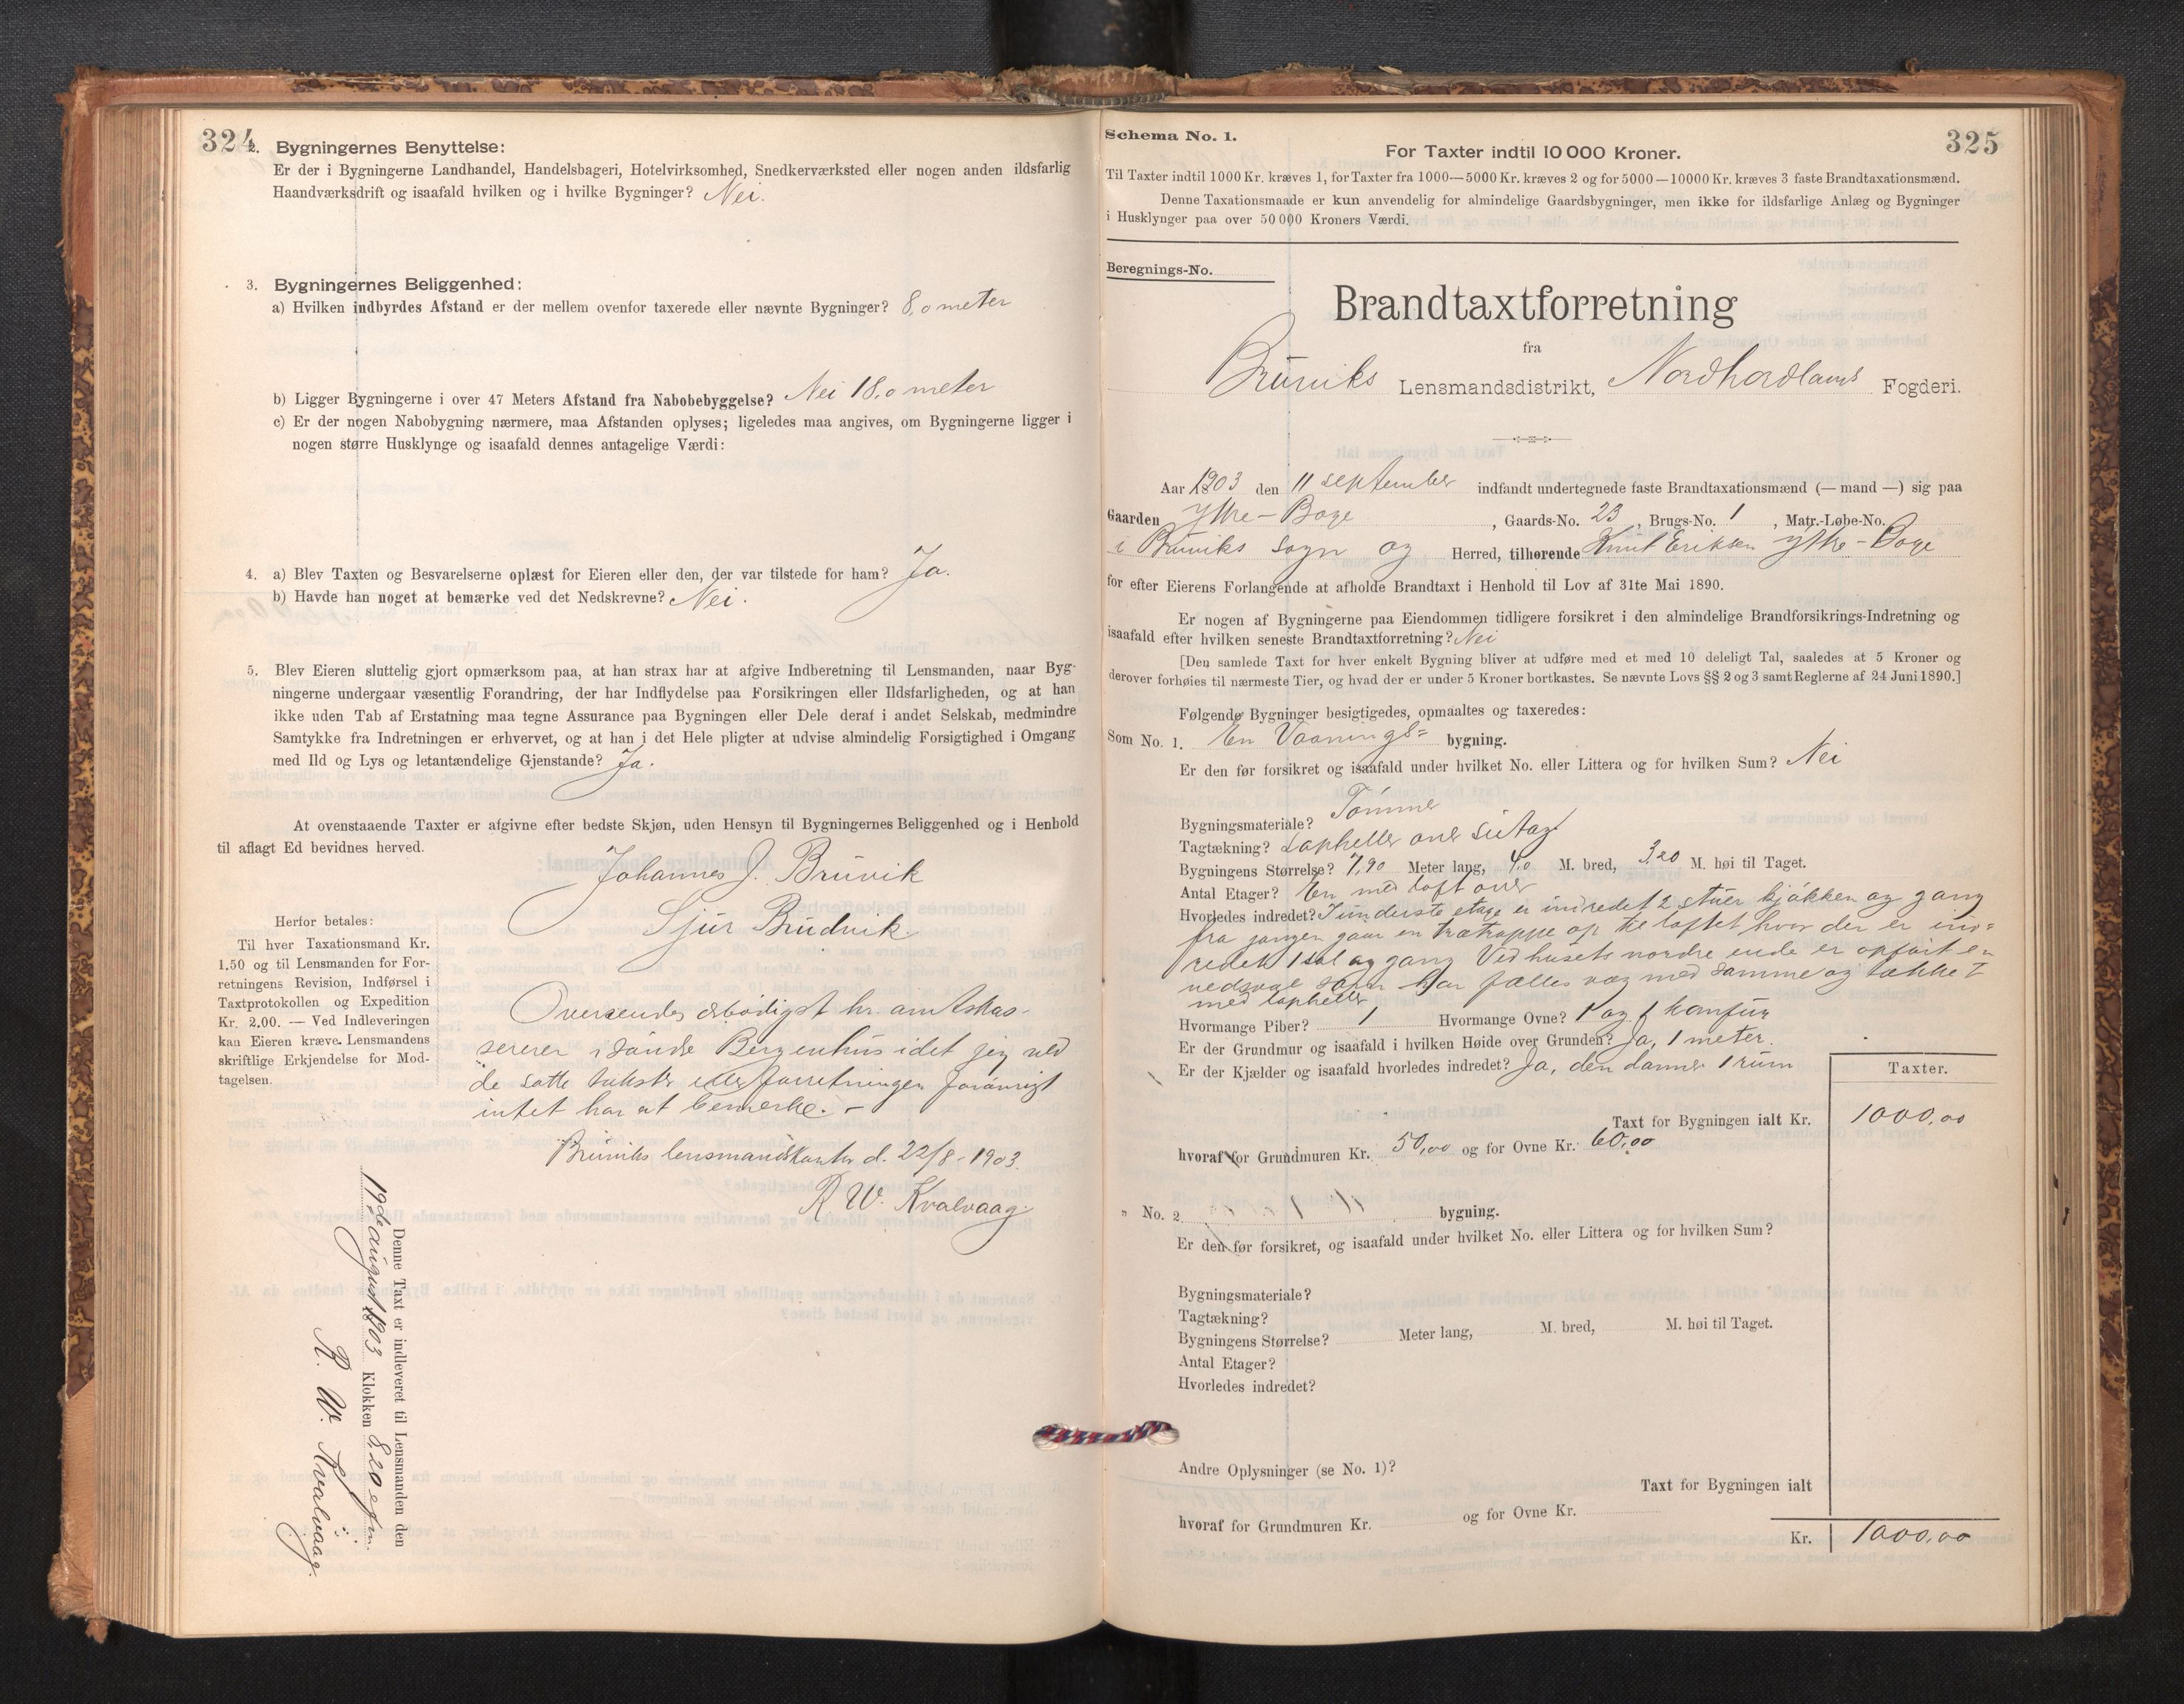 324
2. Bygningernes Benyttelse:
Er der i Bygningerne Landhandel, Handelsbageri, Hotelvirksomhed, Snedkerværksted eller nogen anden ildsfarlig
Haandværksdrift og isaafald hvilken og i hvilke Bygninger? Nei.
3. Bygningernes Beliggenhed:
a) Hvilken indbyrdes Afstand er der mellem ovenfor taxerede eller nævnte Bygninger? 8,0 meter
b) Ligger Bygningerne i over 47 Meters Afstand fra Nabobebyggelse? Nei 18,0 meter
c) Er der nogen Nabobygning nærmere, maa Afstanden oplyses; ligeledes maa angives, om Bygningerne ligger i
nogen større Husklynge og isaafald dennes antagelige Værdi:
4. a) Blev Taxten og Besvarelserne oplæst for Eieren eller den, der var tilstede for ham? Ja.
b) Havde han noget at bemærke ved det Nedskrevne? Nei.
5. Blev Eieren sluttelig gjort opmærksom paa, at han strax har at afgive Indberetning til Lensmanden, naar Byg-
ningerne undergaar væsentlig Forandring, der har Indflydelse paa Forsikringen eller Ildsfarligheden, og at han
ikke uden Tab af Erstatning maa tegne Assurance paa Bygningen eller Dele deraf i andet Selskab, medmindre
Samtykke fra Indretningen er erhvervet, og at han i det Hele pligter at udvise almindelig Forsigtighed i Omgang
med Ild og Lys og letantændelige Gjenstande? Ja.
At ovenstaaende Taxter er afgivne efter bedste Skjøn, uden Hensyn til Bygningernes Beliggenhed og i Henhold
til aflagt Ed bevidnes herved.
Johannes J. Bruvik
Sjur Brudvik.
Herfor betales:
Til hver Taxationsmand Kr.
1.50 og til Lensmanden for For-
retningens Revision, Indførsel i
Taxtprotokollen og Expedition
Kr. 2.00. — Ved Indleveringen
kan Eieren kræve Lensmandens
skriftlige Erkjendelse for Mod-
tagelsen.
Oversendes ærbødigst hr. amtskas-
serer i søndre Bergenhus idet jeg ved
de satte takster eller forretningen forøvrigt
intet har at bemerke. -
Bruviks lensmandskontor d. 22/8 - 1903.
R. W. Kvalvaag.
Denne Taxt er indleveret til Lensmanden den
19de august 1903 Klokken 8,20 efm.
R. W. Kvalvaag.
325
Schema No. 1.
For Taxter indtil 10 000 Kroner.
Til Taxter indtil 1000 Kr. kræves 1, for Taxter fra 1000—5000 Kr. kræves 2 og for 5000—10000 Kr. kræves 3 faste Brandtaxationsmænd.
Denne Taxationsmaade er kun anvendelig for almindelige Gaardsbygninger, men ikke for ildsfarlige Anlæg og Bygninger
i Husklynger paa over 50 000 Kroners Værdi.
Beregnings-No.
Brandtaxtforretning
fra
Bruviks Lensmandsdistrikt, Nordhordlands Fogderi.
Aar 1903 den 11 september indfandt undertegnede faste Brandtaxationsmænd (— mand —) sig paa
Gaarden Ytre-Boge, Gaards-No. 23, Brugs-No. 1, Matr.-Løbe-No.
i Bruviks sogn og Herred, tilhørende Knut Eriksen Ytre-Boge
for efter Eierens Forlangende at afholde Brandtaxt i Henhold til Lov af 31te Mai 1890.
Er nogen af Bygningerne paa Eiendommen tidligere forsikret i den almindelige Brandforsikrings-Indretning og
isaafald efter hvilken seneste Brandtaxtforretning? Nei
[Den samlede Taxt for hver enkelt Bygning bliver at udføre med et med 10 deleligt Tal, saaledes at 5 Kroner og
derover forhøies til nærmeste Tier, og hvad der er under 5 Kroner bortkastes. Se nævnte Lovs §§ 2 og 3 samt Reglerne af 24 Juni 1890.]
Følgende Bygninger besigtigedes, opmaaltes og taxeredes:
Som No. 1. En Vaanings= bygning.
Er den før forsikret og isaafald under hvilket No. eller Littera og for hvilken Sum? Nei
Bygningsmateriale? Tømmer
Tagtækning? Lapheller over sutag
Bygningens Størrelse? 7,90 Meter lang, 4,0 M. bred, 3,20 M. høi til Taget.
Antal Etager? En med loft over
Hvorledes indredet? I underste etage er indredet 2 stuer kjøkken og gang
fra gangen gaar en trætrappe op til loftet hvor der er ind=
redet 1 sal og gang Ved husets nordre ende er opført en
vedsval som har fælles væg med samme og tækket
med lapheller
Hvormange Piber? 1 Hvormange Ovne? 1 og 1 komfur
Er der Grundmur og isaafald i hvilken Høide over Grunden? Ja, 1 meter.
Er der Kjælder og isaafald hvorledes indredet? Ja, den danner 1 rum
Taxter.
Taxt for Bygningen ialt Kr. 1000,00
hvoraf for Grundmuren Kr. 50,00 og for Ovne Kr. 60,00
" No. 2 bygning.
Er den før forsikret, og isaafald under hvilket No. eller Littera og for hvilken Sum?
Bygningsmateriale?
Tagtækning?
Bygningens Størrelse? Meter lang, M. bred, M. høi til Taget.
Antal Etager?
Hvorledes indredet?
Andre Oplysninger (se No. 1)?
Taxt for Bygningen ialt
hvoraf for Grundmuren Kr. og for Ovne Kr.
Kr. 1000,00